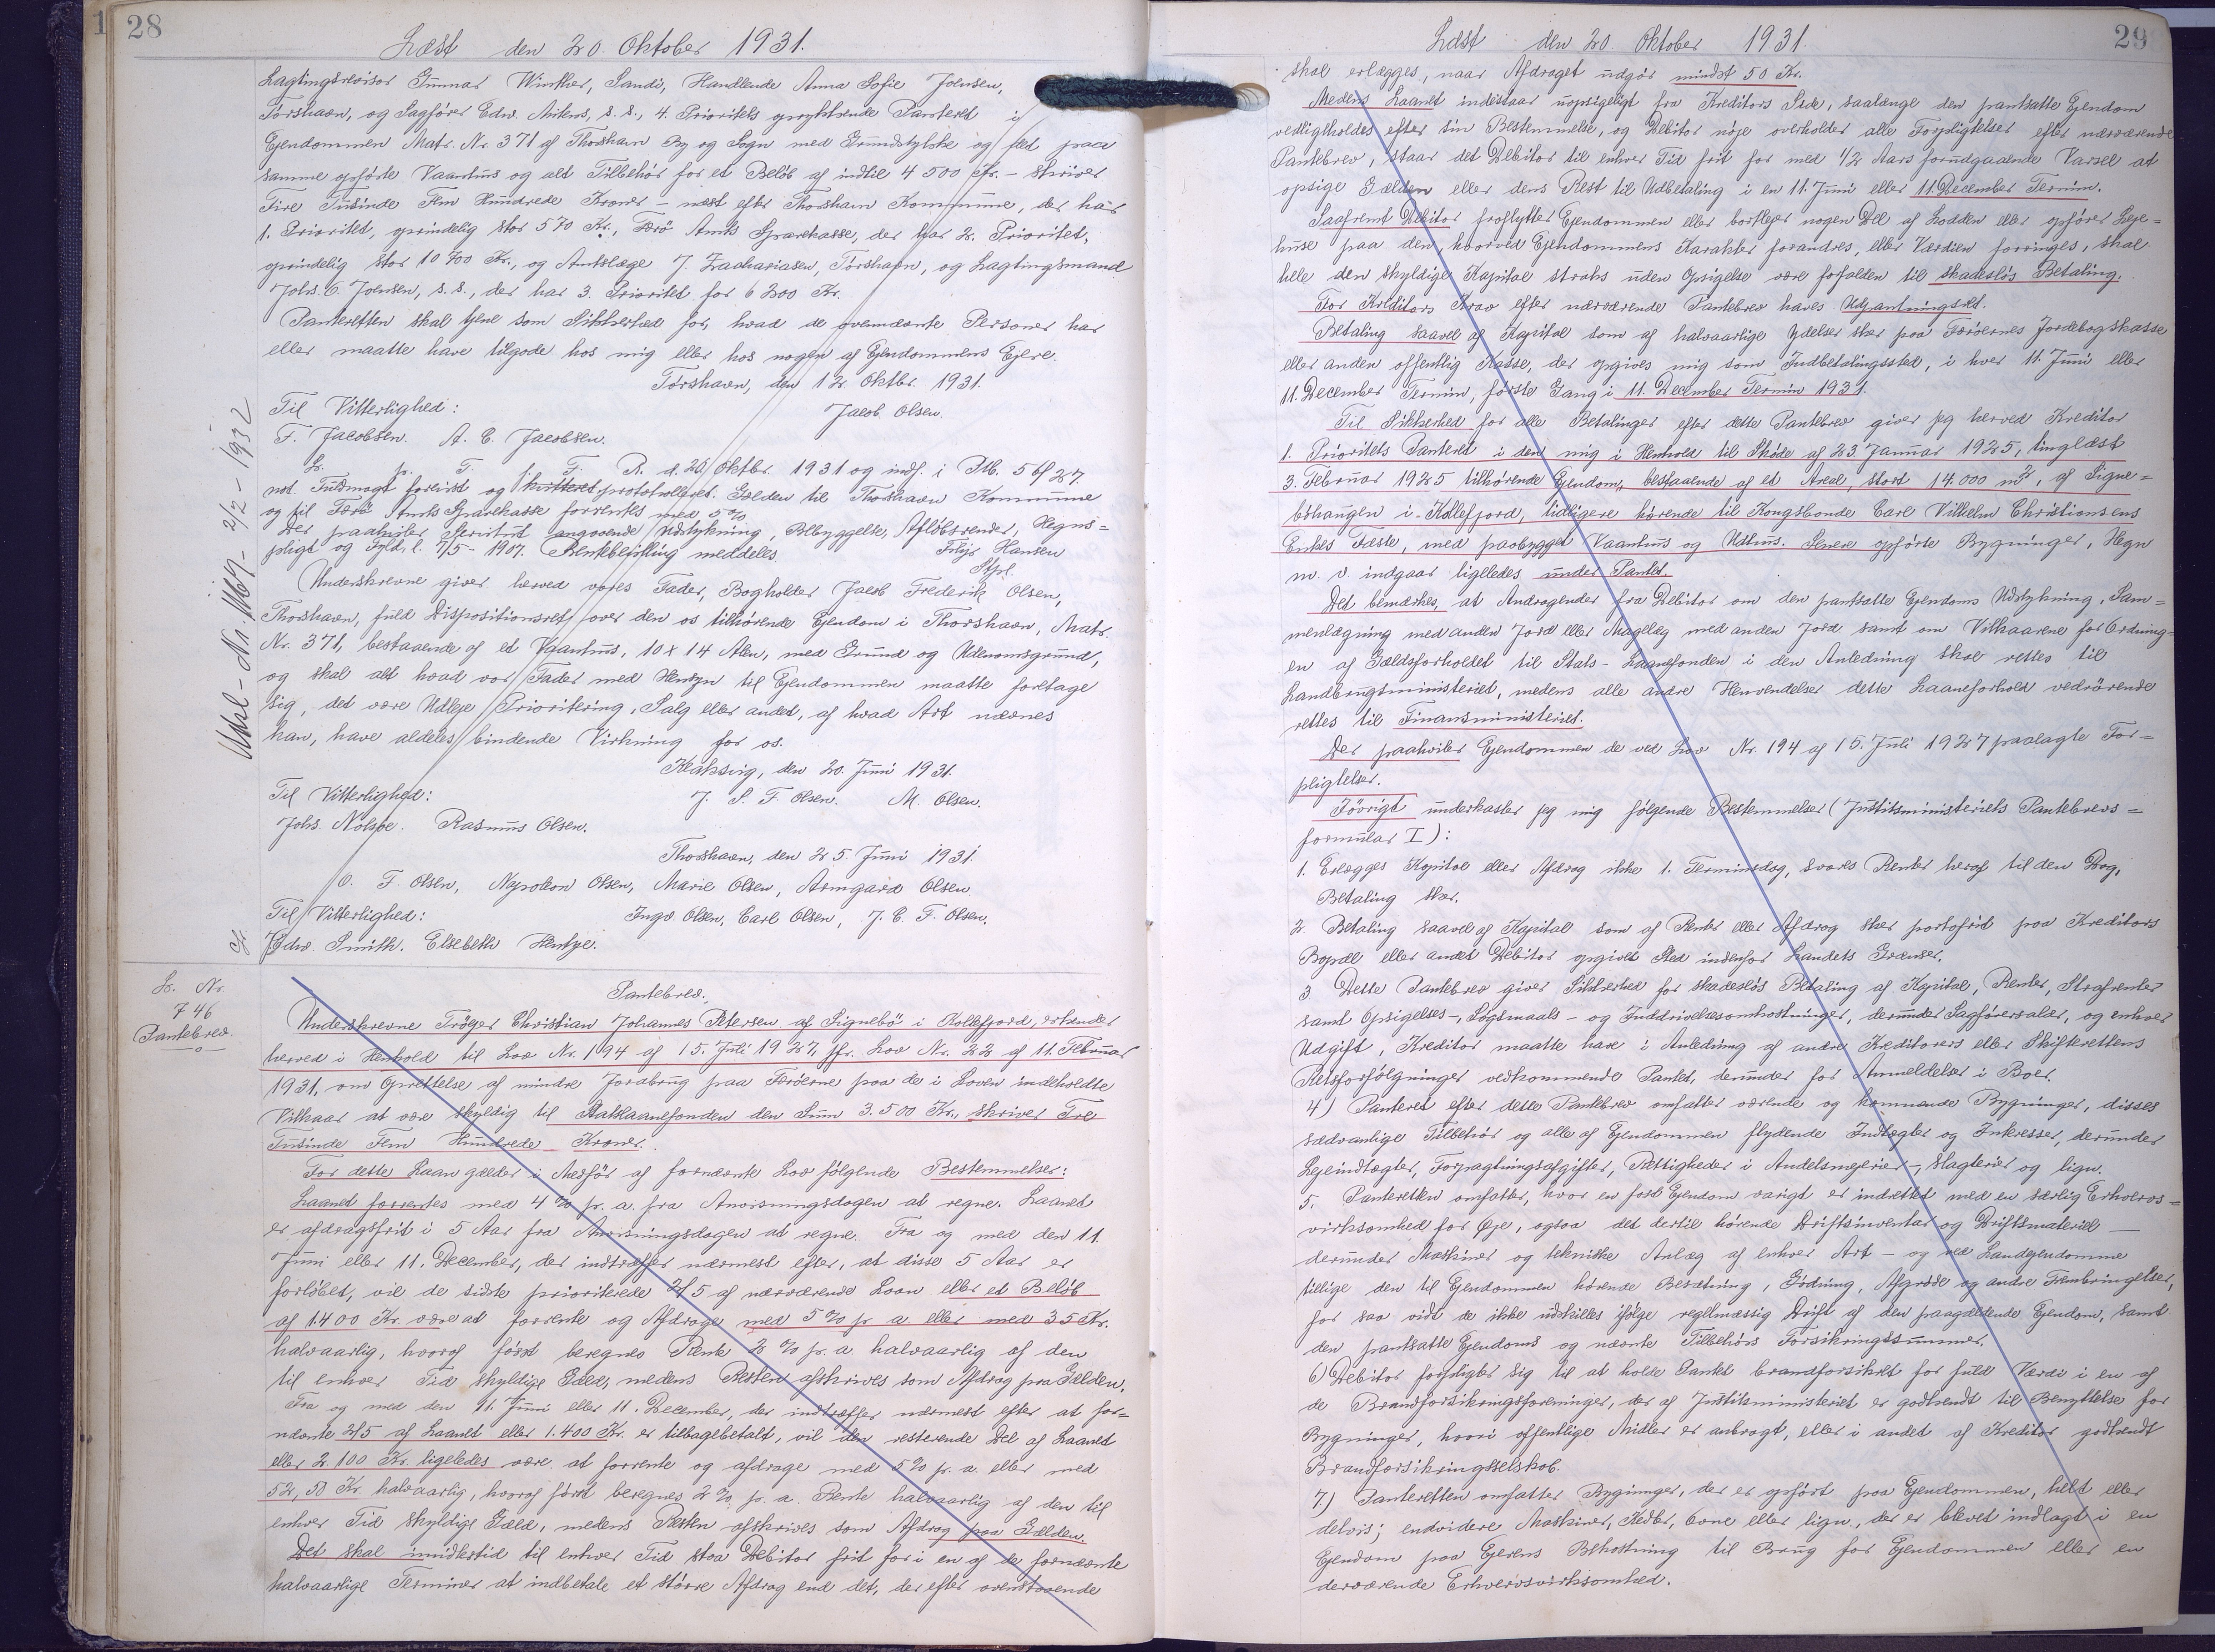 28
Læst den 20. Oktober 1931.
Lagtingsrevisor Gunnar Winther, Sandö, Handlende Anna Sofie Joensen,
Tórshavn, og Sagförer Edw. Mitens, s. s., 4. Prioritets oprykkende Panteret i
Ejendommen Matr. Nr. 371 af Thorshavn By og Sogn med Grundstykke og det paa
samme opförte Vaanhus og alt Tilbehör for et Belöb af indtil 4 500 Kr. - skriver
Fire Tusinde Fem Hundrede Kroner - næst efter Thorshavn Kommune, der har
1. Prioritet, oprindelig stor 570 Kr., Færö Amts Sparekasse, der har 2. Prioritet,
oprindelig stor 10 700 Kr., og Amtslæge J. Zachariasen, Tórshavn, og Lagtingsmand
Johs. C. Joensen, s. s., der har 3. Prioritet for 6 200 Kr.
Panteretten skal tjene som Sikkerhed for, hvad de ovennævnte Personer har
eller maatte have tilgode hos mig eller hos nogen af Ejendommens Ejere.
Tórshavn, den 12. Oktbr. 1931.
Til Vitterlighed: Jacob Olsen.
F. Jacobsen. A. C. Jacobsen.
L. p. T. i T. R. d. 20/ Oktbr. 1931 og indf. i Ptb. 5 bl 27.
not. Fuldmagt forevist og kvitteret protokolleret. Gælden til Thorshavn Kommune
og til Færö Amts Sparekasse forrentes med 5%
Der paahviler Servitut angaaende Udstykning, Bebyggelse, Aflöbsrender, Hegns=
pligt og Fyld, l. 7/5 - 1907. Rentebestilling meddeles. Filip Hansen
Stfn.
Underskrevne giver herved vores Fader, Bogholder Jacob Frederik Olsen,
Thorshavn, fuld Dispositionsret over den os tilhörende Ejendom i Thorshavn, Matr.
Nr. 371, bestaaende af et Vaanhus, 10 x 14 Alen, med Grund og Udenomsgrund,
og skal alt hvad vor Fader med Hensyn til Ejendommen maatte foretage
sig, det være Udleje, Prioritering, Salg eller andet, af hvad Art nævnes
kan, have aldeles bindende Virkning for os.
Klaksvig, den 20. Juni 1931.
Til Vitterlighed: J. S. F. Olsen. M. Olsen.
Johs. Nolsøe. Rasmus Olsen.
Thorshavn, den 25. Juni 1931.
O. F. Olsen, Napoleon Olsen, Marie Olsen, Armgard Olsen
Til Vitterlighed: Ingv. Olsen, Carl Olsen, J. C. F. Olsen.
Edw Smith. Elsebeth Hentze.
L. Nr.
746
Pantebrev.
Pantebrev.
Underskrevne Tróger Christian Johannes Petersen af Signebö i Kollefjord, erkender
herved i Henhold til Lov Nr. 194 af 15. Juli 1927, jfr. Lov Nr. 22 af 11. Februar
1931, om Oprettelse af mindre Jordbrug paa Færöerne paa de i Loven indeholdte
Vilkaar at være skyldig til Statslaanefonden den Sum 3.500 Kr., skriver Tre
Tusinde Fem Hundrede Kroner.
For dette Laan gælder i Medför af fornævnte Lov fölgende Bestemmelser:
Laanet forrentes med 4 % pr. a. fra Anvisningsdagen at regne. Laanet
er afdragsfrit i 5 Aar fra Anvisningsdagen at regne. Fra og med den 11.
Juni eller 11. December, der indtræffer nærmest efter, at disse 5 Aar er
forlöbet, vil de sidste prioriterede 2/5 af nærværende Laan eller et Belöb
af 1.400 Kr. være at forrente og Afdrage med 5 % pr a. eller med 35 Kr.
halvaarlig, hvoraf först beregnes Rente 2 % pr. a halvaarlig af den
til enhver Tid skyldige Gæld, medens Resten afskrives som Afdrag paa Gælden.
Fra og med den 11. Juni eller 11. December, der indtræffer nærmest efter at for=
nævnte 2/5 af Laanet eller 1.400 Kr. er tilbagebetalt, vil den resterende Del af Laanet
eller 2 100 Kr. ligeledes være at forrente og afdrage med 5 % pr. a. eller med
52,50 Kr. halvaarlig, hvoraf först beregnes 2 % pr. a. Rente halvaarlig af den til
enhver Tid skyldige Gæld, medens Resten afskrives som Afdrag paa Gælden.
Det skal imidlertid til enhver Tid staa Debitor frit for i en af de fornævnte
halvaarlige Terminer at indbetale et större Afdrag end det, der efter ovenstaaende
29
Læst den 20. Oktober 1931.
skal erlægges, naar Afdraget udgör mindst 50 Kr.
Medens Laanet indestaar uopsigeligt fra Kreditors Side, saalænge den pantsatte Ejendom
vedligeholdes efter sin Bestemmelse, og Debitor nöje overholder alle Forpligtelser efter nærværende
Pantebrev, staar det Debitor til enhver Tid frit for med 1/2 Aars forudgaaende Varsel at
opsige Gælden eller dens Rest til Udbetaling i en 11. Juni eller 11. December Termin.
Saafremt Debitor fraflytter Ejendommen eller bortlejer nogen Del af Lodden eller opförer Leje=
huse paa den, hvorved Ejendommens Karakter forandres, eller Værdien forringes, skal
hele den skyldige Kapital straks uden Opsigelse være forfalden til skadeslös Betaling.
For Kreditors Krav efter nærværende Pantebrev haves Udpantningsret.
Betaling saavel af Kapital som af halvaarlige Ydelser sker paa Færöernes Jordebogskasse
eller anden offentlig Kasse, der opgives mig som Indbetalingssted, i hver 11. Juni eller
11. December Termin, förste Gang i 11. December Termin 1931.
Til Sikkerhed for alle Betalinger efter dette Pantebrev giver jeg herved Kreditor
1. Prioritets Panteret i den mig i Henhold til Sköde af 23. Januar 1925, tinglæst
3. Februar 1925 tilhörende Ejendom, bestaaende af et Areal, stort 14.000 m², af Signe=
böhaugen i Kollefjord, tidligere hörende til Kongsbonde Carl Vilhelm Christiansens
Enkes Fæste, med paabygget Vaanhus og Udhus. Senere opförte Bygninger, Hegn
m. v. indgaar ligeledes under Pantet.
Det bemærkes, at Andragender fra Debitor om den pantsatte Ejendoms Udstykning, Sam=
menlægning med anden Jord eller Magelæg med anden Jord samt om Vilkaarene for Ordning=
en af Gældsforholdet til Stats-Laanefonden i den Anledning skal rettes til
Landbrugsministeriet, medens alle andre Henvendelser dette Laaneforhold vedrörende
rettes til Finansministeriet.
Der paahviler Ejendommen de ved Lov Nr. 194 af 15. Juli 1927 paalagte For=
pligtelser.
Iövrigt underkaster jeg mig fölgende Bestemmelser (Justitsministeriets Pantebrevs=
formular I):
1. Erlægges Kapital eller Afdrag ikke 1. Terminsdag, svares Renter heraf til den Dag,
Betaling sker.
2. Betaling saavel af Kapital som af Renter eller Afdrag sker portofrit paa Kreditors
Bopæl eller andet Debitor opgivet Sted indenfor Landets Grænser.
3 Dette Pantebrev giver Sikkerhed for skadeslös Betaling af Kapital, Renter, Strafrenter
samt Opsigelses-, Sögsmaals- og Inddrivelsesomkostninger, derunder Sagförersalær, og enhver
Udgift, Kreditor maatte have i Anledning af andre Kreditorers eller Skifterettens
Retsforfölgninger vedkommende Pantet, derunder for Anmeldelser i Boer.
4) Panteret efter dette Pantebrev omfatter værende og kommende Bygninger, disses
sædvanlige Tilbehör og alle af Ejendommen flydende Indtægter og Interesser, derunder
Lejeindtægter, Forpagtningsafgifter, Rettigheder i Andelsmejerier-, Slagterier og lign.
5. Panteretten omfatter, hvor en fast Ejendom varigt er indrettet med en særlig Erhvervs=
virksomhed for Øje, ogsaa det dertil hörende Driftsinventar og Driftsmateriel —
derunder Maskiner og tekniske Anlæg af enhver Art - og ved Landejendomme
tillige den til Ejendommen hörende Besætning, Gödning, Afgröde og andre Frembringelser,
for saa vidt de ikke udskilles ifölge regelmæssig Drift af den paagældende Ejendom, samt
den pantsatte Ejendoms og nævnte Tilbehörs Forsikringssummer.
6) Debitor forpligter sig til at holde Pantet brandforsikret for fuld Værdi i en af
de Brandforsikringsforeninger, der af Justitsministeriet er godkendt til Benyttelse for
Bygninger, hvori offentlige Midler er anbragt, eller i andet af Kreditor godkendt
Brandforsikringsselskab.
7) Panteretten omfatter Bygninger, der er opfört paa Ejendommen, helt eller
delvis; endvidere Maskiner, Kedler, Ovne eller lign., der er blevet indlagt i en
Ejendom paa Ejerens Bekostning til Brug for Ejendommen eller en
derværende Erhvervsvirksomhed.